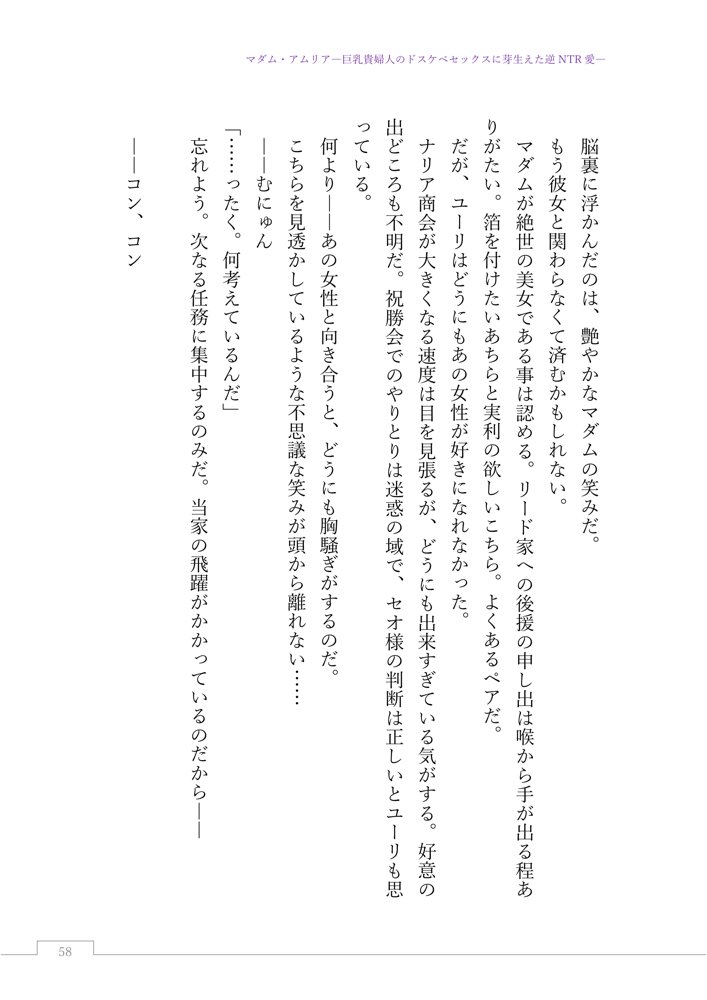 マダム・アムリア―巨乳貴婦人のドスケベセックスに芽生えた逆NTR愛―
脳裏に浮かんだのは、艶やかなマダムの笑みだ。
もう彼女と関わらなくて済むかもしれない。
マダムが絶世の美女である事は認める。リード家への後援の申し出は喉から手が出る程あ
りがたい。箔を付けたいあちらと実利の欲しいこちら。よくあるペアだ。
だが、ユーリはどうにもあの女性が好きになれなかった。
ナリア商会が大きくなる速度は目を見張るが、どうにも出来すぎている気がする。好意の
出どころも不明だ。祝勝会でのやりとりは迷惑の域で、セオ様の判断は正しいとユーリも思
っている。
何より――あの女性と向き合うと、どうにも胸騒ぎがするのだ。
こちらを見透かしているような不思議な笑みが頭から離れない……
――むにゅん
「……ったく。何考えているんだ」
忘れよう。次なる任務に集中するのみだ。当家の飛躍がかかっているのだから――
――コン、コン
58